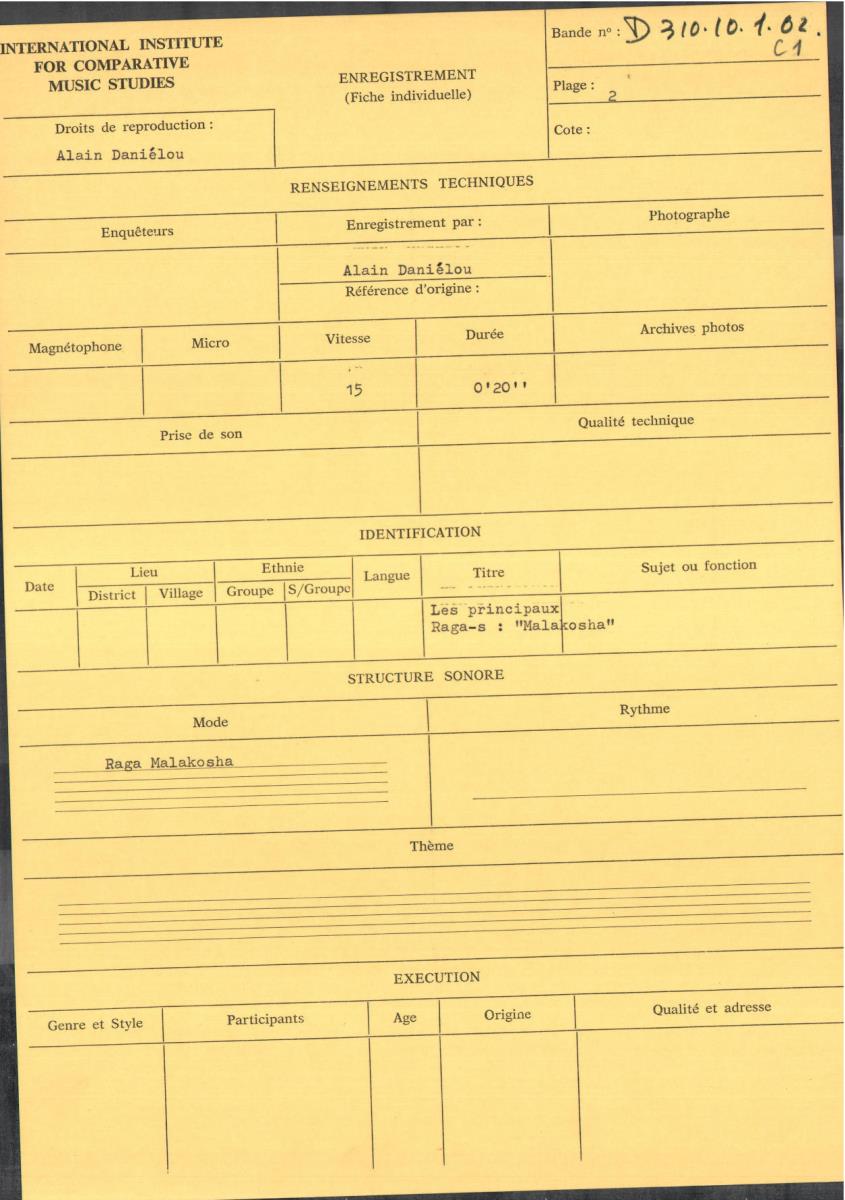 INTERNATIONAL INSTITUTE
FOR COMPARATIVE
MUSIC STUDIES
Droits de reproduction :
Alain Daniélou
ENREGISTREMENT
(Fiche individuelle)
Bande nº : D 310.10.1.02.
C1
Plage : 2
Cote :
RENSEIGNEMENTS TECHNIQUES
Enquêteurs
Enregistrement par :
Photographe
Alain Daniélou
Référence d'origine :
Magnétophone
Micro
Vitesse
Durée
Archives photos
15
0'20''
Prise de son
Qualité technique
IDENTIFICATION
Date
Lieu
Ethnie
Langue
Titre
Sujet ou fonction
District
Village
Groupe
S/Groupe
Les principaux
Raga-s : "Malakosha"
STRUCTURE SONORE
Mode
Rythme
Raga Malakosha
Thème
EXECUTION
Genre et Style
Participants
Age
Origine
Qualité et adresse